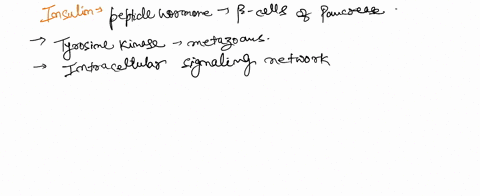 Insulin → peptide hormone → β-cells of Pancrease.
→ Tyrosine Kinase → metazoans.
→ Intracellular signaling network